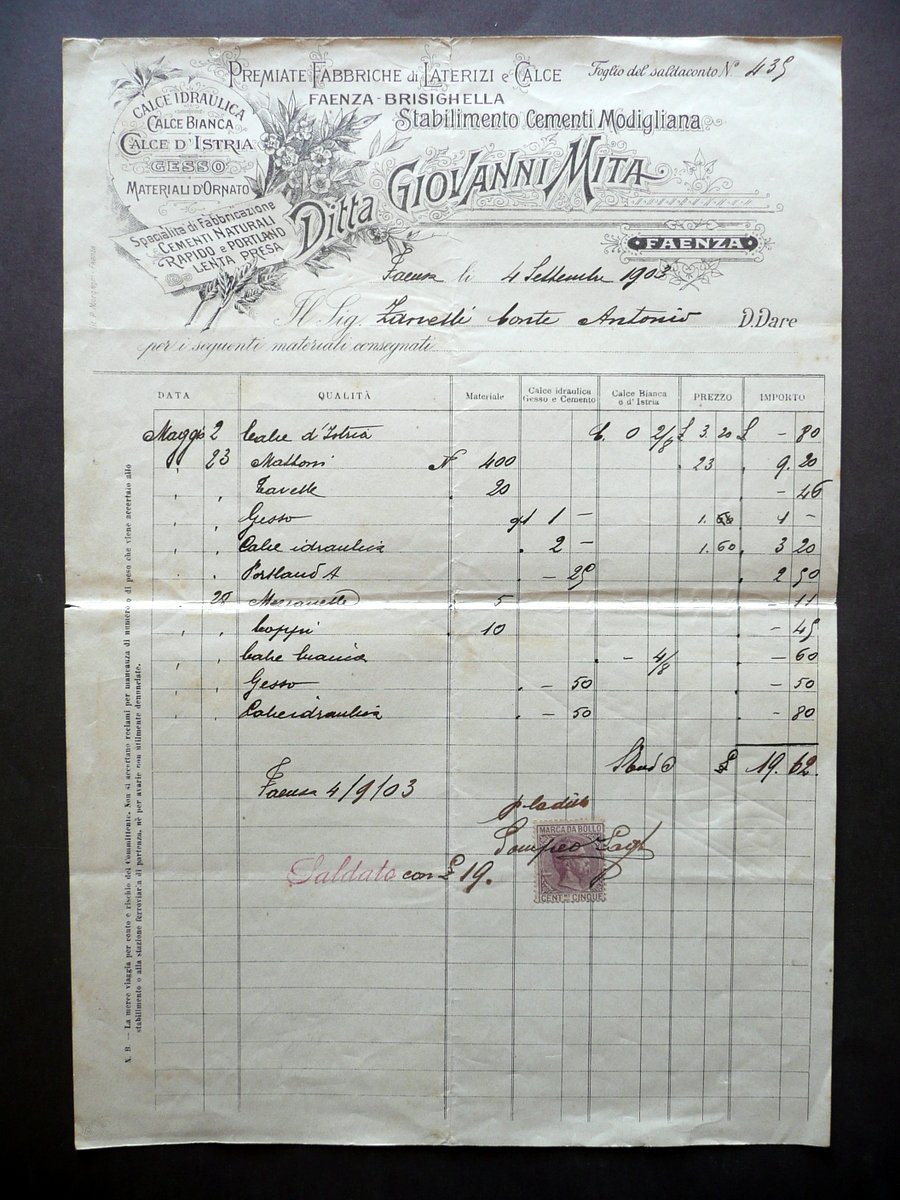 PREMIATE FABBRICHE di LATERIZI e CALCE
Foglio del saldaconto N.° 435
FAENZA - BRISIGHELLA
Stabilimento Cementi Modigliana
Ditta GIOVANNI MITA
FAENZA
CALCE IDRAULICA
CALCE BIANCA
CALCE D'ISTRIA
GESSO
MATERIALI D'ORNATO
Specialità di Fabbricazione
CEMENTI NATURALI
RAPIDO e PORTLAND
LENTA PRESA
Faenza li 4 Settembre 1903
Il Sig. Zanelli Conte Antonio D. Dare
per i seguenti materiali consegnati
DATA QUALITÀ Materiale Calce idraulica Gesso e Cemento Calce Bianca o d'Istria PREZZO IMPORTO
Maggio 2 Calce d'Istria C. 0 2/8 £ 3.20 £ - 80
" 23 Mattoni N 400 . 23 . 9. 20
" " Tavelle . 20 - 46
" " Gesso ql 1 - 1. 1 -
" " Calce idraulica . 2 - 1.60 . 3 20
" Portland A - 25 . 2 50
5 - 11
" " Coppi . 10 . - 45
" " Calce bianca - 4/8 . - 60
" " Gesso . - 50 . - 50
" " Calce idraulica . - 50 . - 80
£ 19. 62.
Faenza 4/9/03
p la ditta
Pompeo
MARCA DA BOLLO
CENT.MI CINQUE
Saldato con £ 19.
N. B. — La merce viaggia per conto e rischio dei Committenti. Non si accettano reclami per mancanza di numero o di peso che viene accertato allo
stabilimento o alla stazione ferroviaria di partenza, nè per avarie non utilmente denunciate.